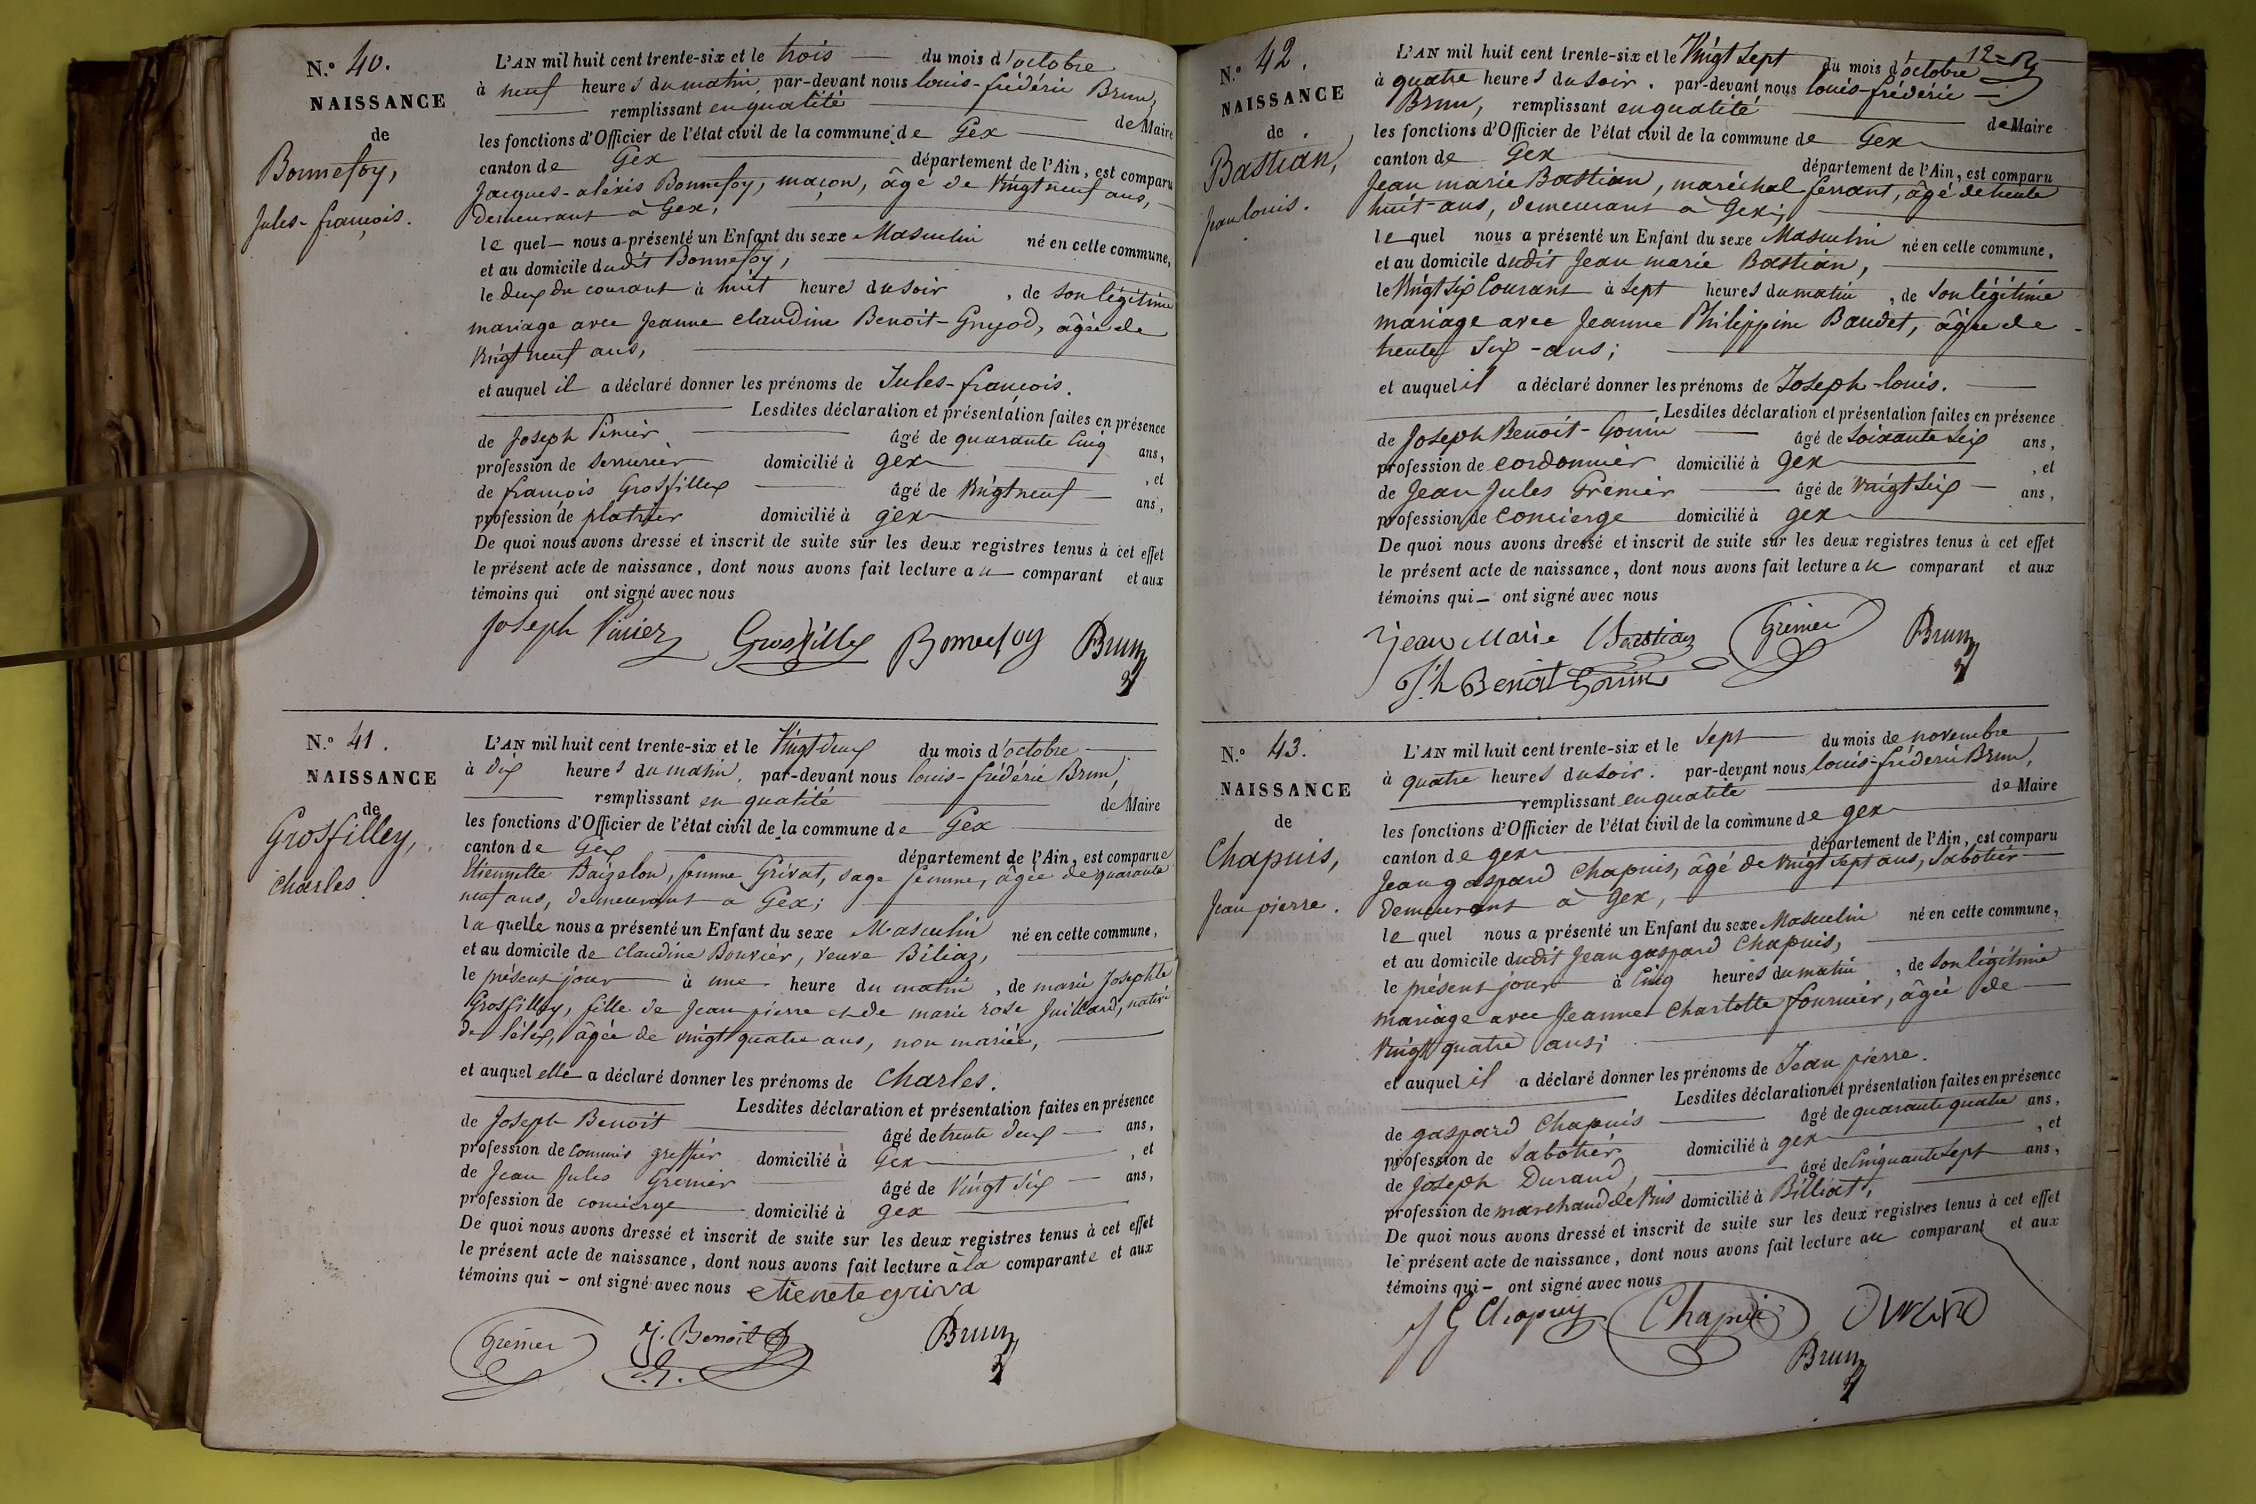 N.º 40.
NAISSANCE
de
Bonnefoy,
Jules-françois.
L'AN mil huit cent trente-six et le trois du mois d'octobre
à neuf heures du matin, par-devant nous louis-frédéric Brun,
remplissant en qualité de Maire
les fonctions d'Officier de l'état civil de la commune de Gex
canton de Gex département de l'Ain, est comparu
Jacques-aléxis Bonnefoy, maçon, âgé de vingt neuf ans,
demeurant à Gex;
le quel nous a présenté un Enfant du sexe Masculin né en cette commune,
et au domicile dudit Bonnefoy;
le deux du courant à huit heures du soir, de son légitime
mariage avec Jeanne claudine Benoit-Guyod, âgée de
vingt neuf ans,
et auquel il a déclaré donner les prénoms de Jules-françois.
Lesdites déclaration et présentation faites en présence
de Joseph Pinier âgé de quarante cinq ans,
profession de serrurier domicilié à gex, et
de françois Grosfilley âgé de vingt neuf ans,
profession de platrier domicilié à gex
De quoi nous avons dressé et inscrit de suite sur les deux registres tenus à cet effet
le présent acte de naissance, dont nous avons fait lecture au comparant et aux
témoins qui ont signé avec nous
Joseph Pinier Grosfilley Bonnefoy Brun
N.º 41.
NAISSANCE
de
Grosfilley,
charles.
L'AN mil huit cent trente-six et le vingt deux du mois d'octobre
à dix heures du matin, par-devant nous louis-frédéric Brun,
remplissant en qualité de Maire
les fonctions d'Officier de l'état civil de la commune de Gex
canton de Gex département de l'Ain, est comparue
Etiennette Baizelon, femme Grivat, sage femme, âgée de quarante
neuf ans, demeurant à Gex;
la quelle nous a présenté un Enfant du sexe Masculin né en cette commune,
et au domicile de claudine Bouvier, veuve Biliaz,
le présent jour à une heure du matin, de marie Josephte
Grosfilley, fille de Jean pierre et de marie rose Juillard, native
de léléx, âgée de vingt quatre ans, non mariée,
et auquel elle a déclaré donner les prénoms de charles.
Lesdites déclaration et présentation faites en présence
de Joseph Benoit âgé de trente deux ans,
profession de commis greffier domicilié à Gex, et
de Jean Jules Grenier âgé de vingt six ans,
profession de concierge domicilié à gex
De quoi nous avons dressé et inscrit de suite sur les deux registres tenus à cet effet
le présent acte de naissance, dont nous avons fait lecture à la comparante et aux
témoins qui - ont signé avec nous etienete griva
Grenier J. Benoit Brun
12=
N.º 42.
NAISSANCE
de
Bastian,
jean louis.
L'AN mil huit cent trente-six et le vingt sept du mois d'octobre
à quatre heures du soir. par-devant nous louis-frédéric
Brun, remplissant en qualité de Maire
les fonctions d'Officier de l'état civil de la commune de Gex
canton de Gex département de l'Ain, est comparu
Jean marie Bastian, maréchal ferrant, âgé de trente
huit ans, demeurant à Gex;
le quel nous a présenté un Enfant du sexe Masculin né en cette commune,
et au domicile dudit Jean marie Bastian,
le vingt six Courant à sept heures du matin, de son légitime
mariage avec Jeanne Philippine Baudet, âgée de
trente six-ans;
et auquel il a déclaré donner les prénoms de Joseph-louis.
Lesdites déclaration et présentation faites en présence
de Joseph Benoit-Gonin âgé de soixante six ans,
profession de cordonnier domicilié à gex, et
de Jean Jules Grenier âgé de vingt six ans,
profession de concierge domicilié à gex
De quoi nous avons dressé et inscrit de suite sur les deux registres tenus à cet effet
le présent acte de naissance, dont nous avons fait lecture au comparant et aux
témoins qui - ont signé avec nous
jean Marie Bastian Grenier Brun
Jh Benoit Gonin
N.º 43.
NAISSANCE
de
Chapuis,
Jean pierre.
L'AN mil huit cent trente-six et le sept du mois de novembre
à quatre heures du soir. par-devant nous louis-frédéric Brun,
remplissant en qualité de Maire
les fonctions d'Officier de l'état civil de la commune de gex
canton de gex département de l'Ain, est comparu
Jean gaspard Chapuis, âgé de vingt sept ans, sabotier
demeurant à Gex,
le quel nous a présenté un Enfant du sexe Masculin né en cette commune,
et au domicile dudit Jean gaspard Chapuis,
le présent jour à cinq heures du matin, de son légitime
mariage avec Jeanne Charlotte fournier, âgée de
vingt quatre ans;
et auquel il a déclaré donner les prénoms de Jean pierre.
Lesdites déclaration et présentation faites en présence
de gaspard Chapuis âgé de quarante quatre ans,
profession de sabotier domicilié à gex, et
de Joseph Durand, âgé de cinquante sept ans,
profession de marchand de vins domicilié à Billiat,
De quoi nous avons dressé et inscrit de suite sur les deux registres tenus à cet effet
le présent acte de naissance, dont nous avons fait lecture au comparant et aux
témoins qui - ont signé avec nous
J G Chapuy Chapuis Durand
Brun